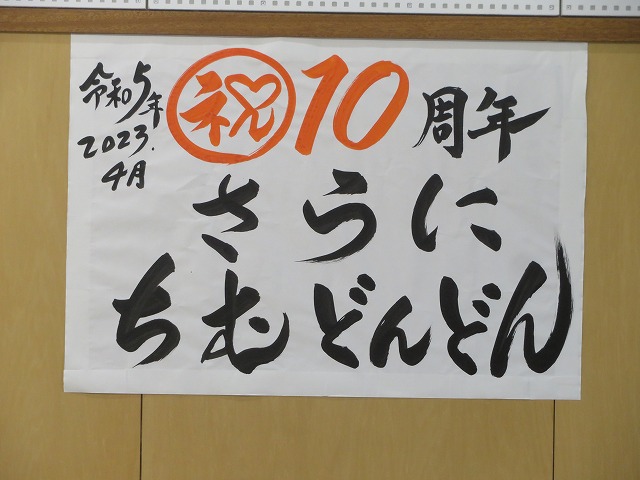 令和5年
2023.
4月
祝10周年
さらに
ちむどんどん